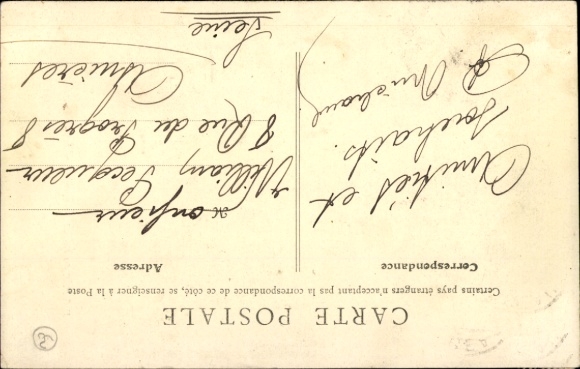 CARTE POSTALE
Certains pays étrangers n'acceptant pas la correspondance de ce côté, se renseigner à la Poste
Correspondance
Amitiés et
souhaits.
Adresse
Monsieur
William
8 Rue du Progrès 8
Asnières
Seine